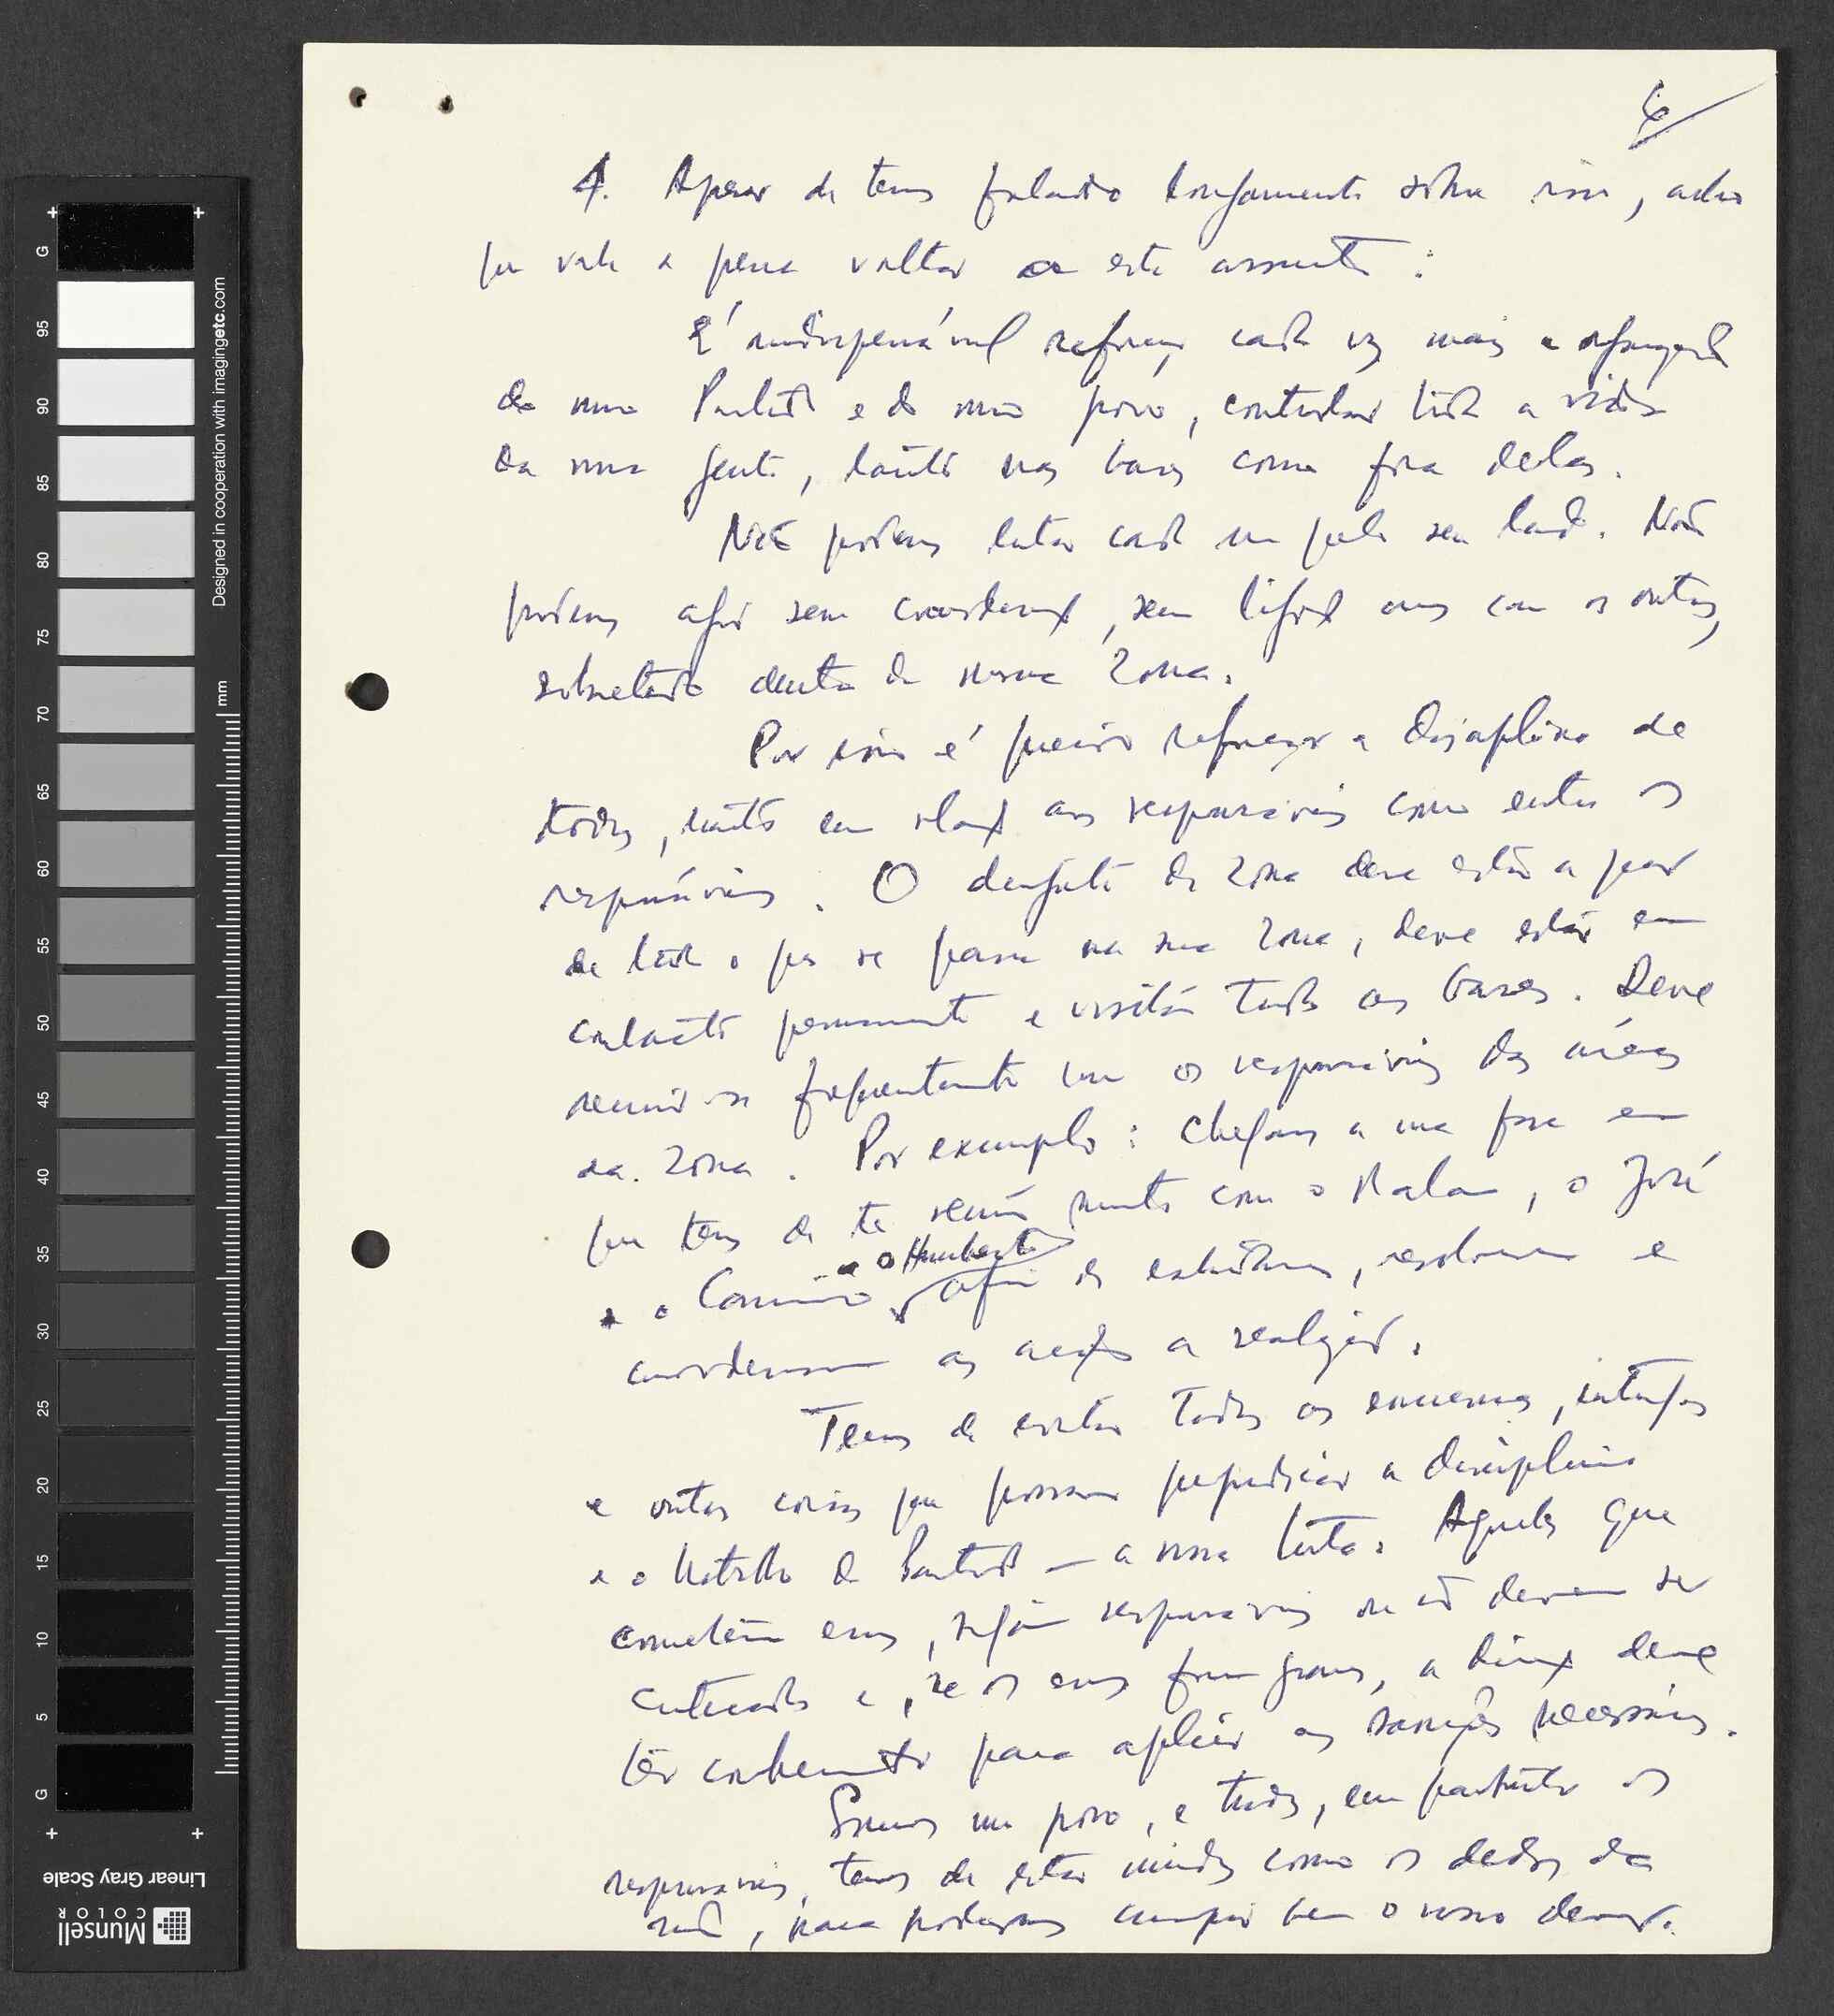 6
4. Apesar de termos falado longamente sobre isso, acho
que vale a pena voltar a este assunto:
É indispensável reforçar cada vez mais a organização
do nosso Partido e do nosso povo, controlar toda a vida
da nossa gente, tanto nas bases como fora delas.
Não podemos lutar cada um pelo seu lado. Não
podemos agir sem coordenação, sem ligação uns com os outros,
sobretudo dentro da mesma zona.
Por isso é preciso reforçar a disciplina de
todos, tanto em relação aos responsáveis como entre os
responsáveis. O dirigente da zona deve estar a par
de tudo o que se passa na sua zona, deve estar em
contacto permanente e visitar todas as bases. Deve
reunir-se frequentemente com os responsáveis das áreas
da zona. Por exemplo: chegamos a uma fase em
que tens de te reunir muito com o Malam, o José
e o Humberto
e o afim de estudarem, resolverem e
coordenarem as acções a realizar.
Temos de evitar todos os, intrigas
e outras coisas que possam prejudicar a disciplina
e o trabalho do Partido — a nossa luta. Aqueles que
cometem erros, sejam responsáveis ou não devem ser
criticados e, se os erros forem graves, a direcção deve
ter conhecimento para aplicar as sanções necessárias.
Somos um povo, e todos, em particular os
responsáveis, temos de estar unidos como os dedos da
mão, para podermos cumprir bem o nosso dever.
Designed in cooperation with imagingetc.com
mm
G
95
90
85
80
75
70
65
60
55
50
45
40
35
30
25
20
15
10
5
G
Linear Gray Scale
Munsell
COLOR